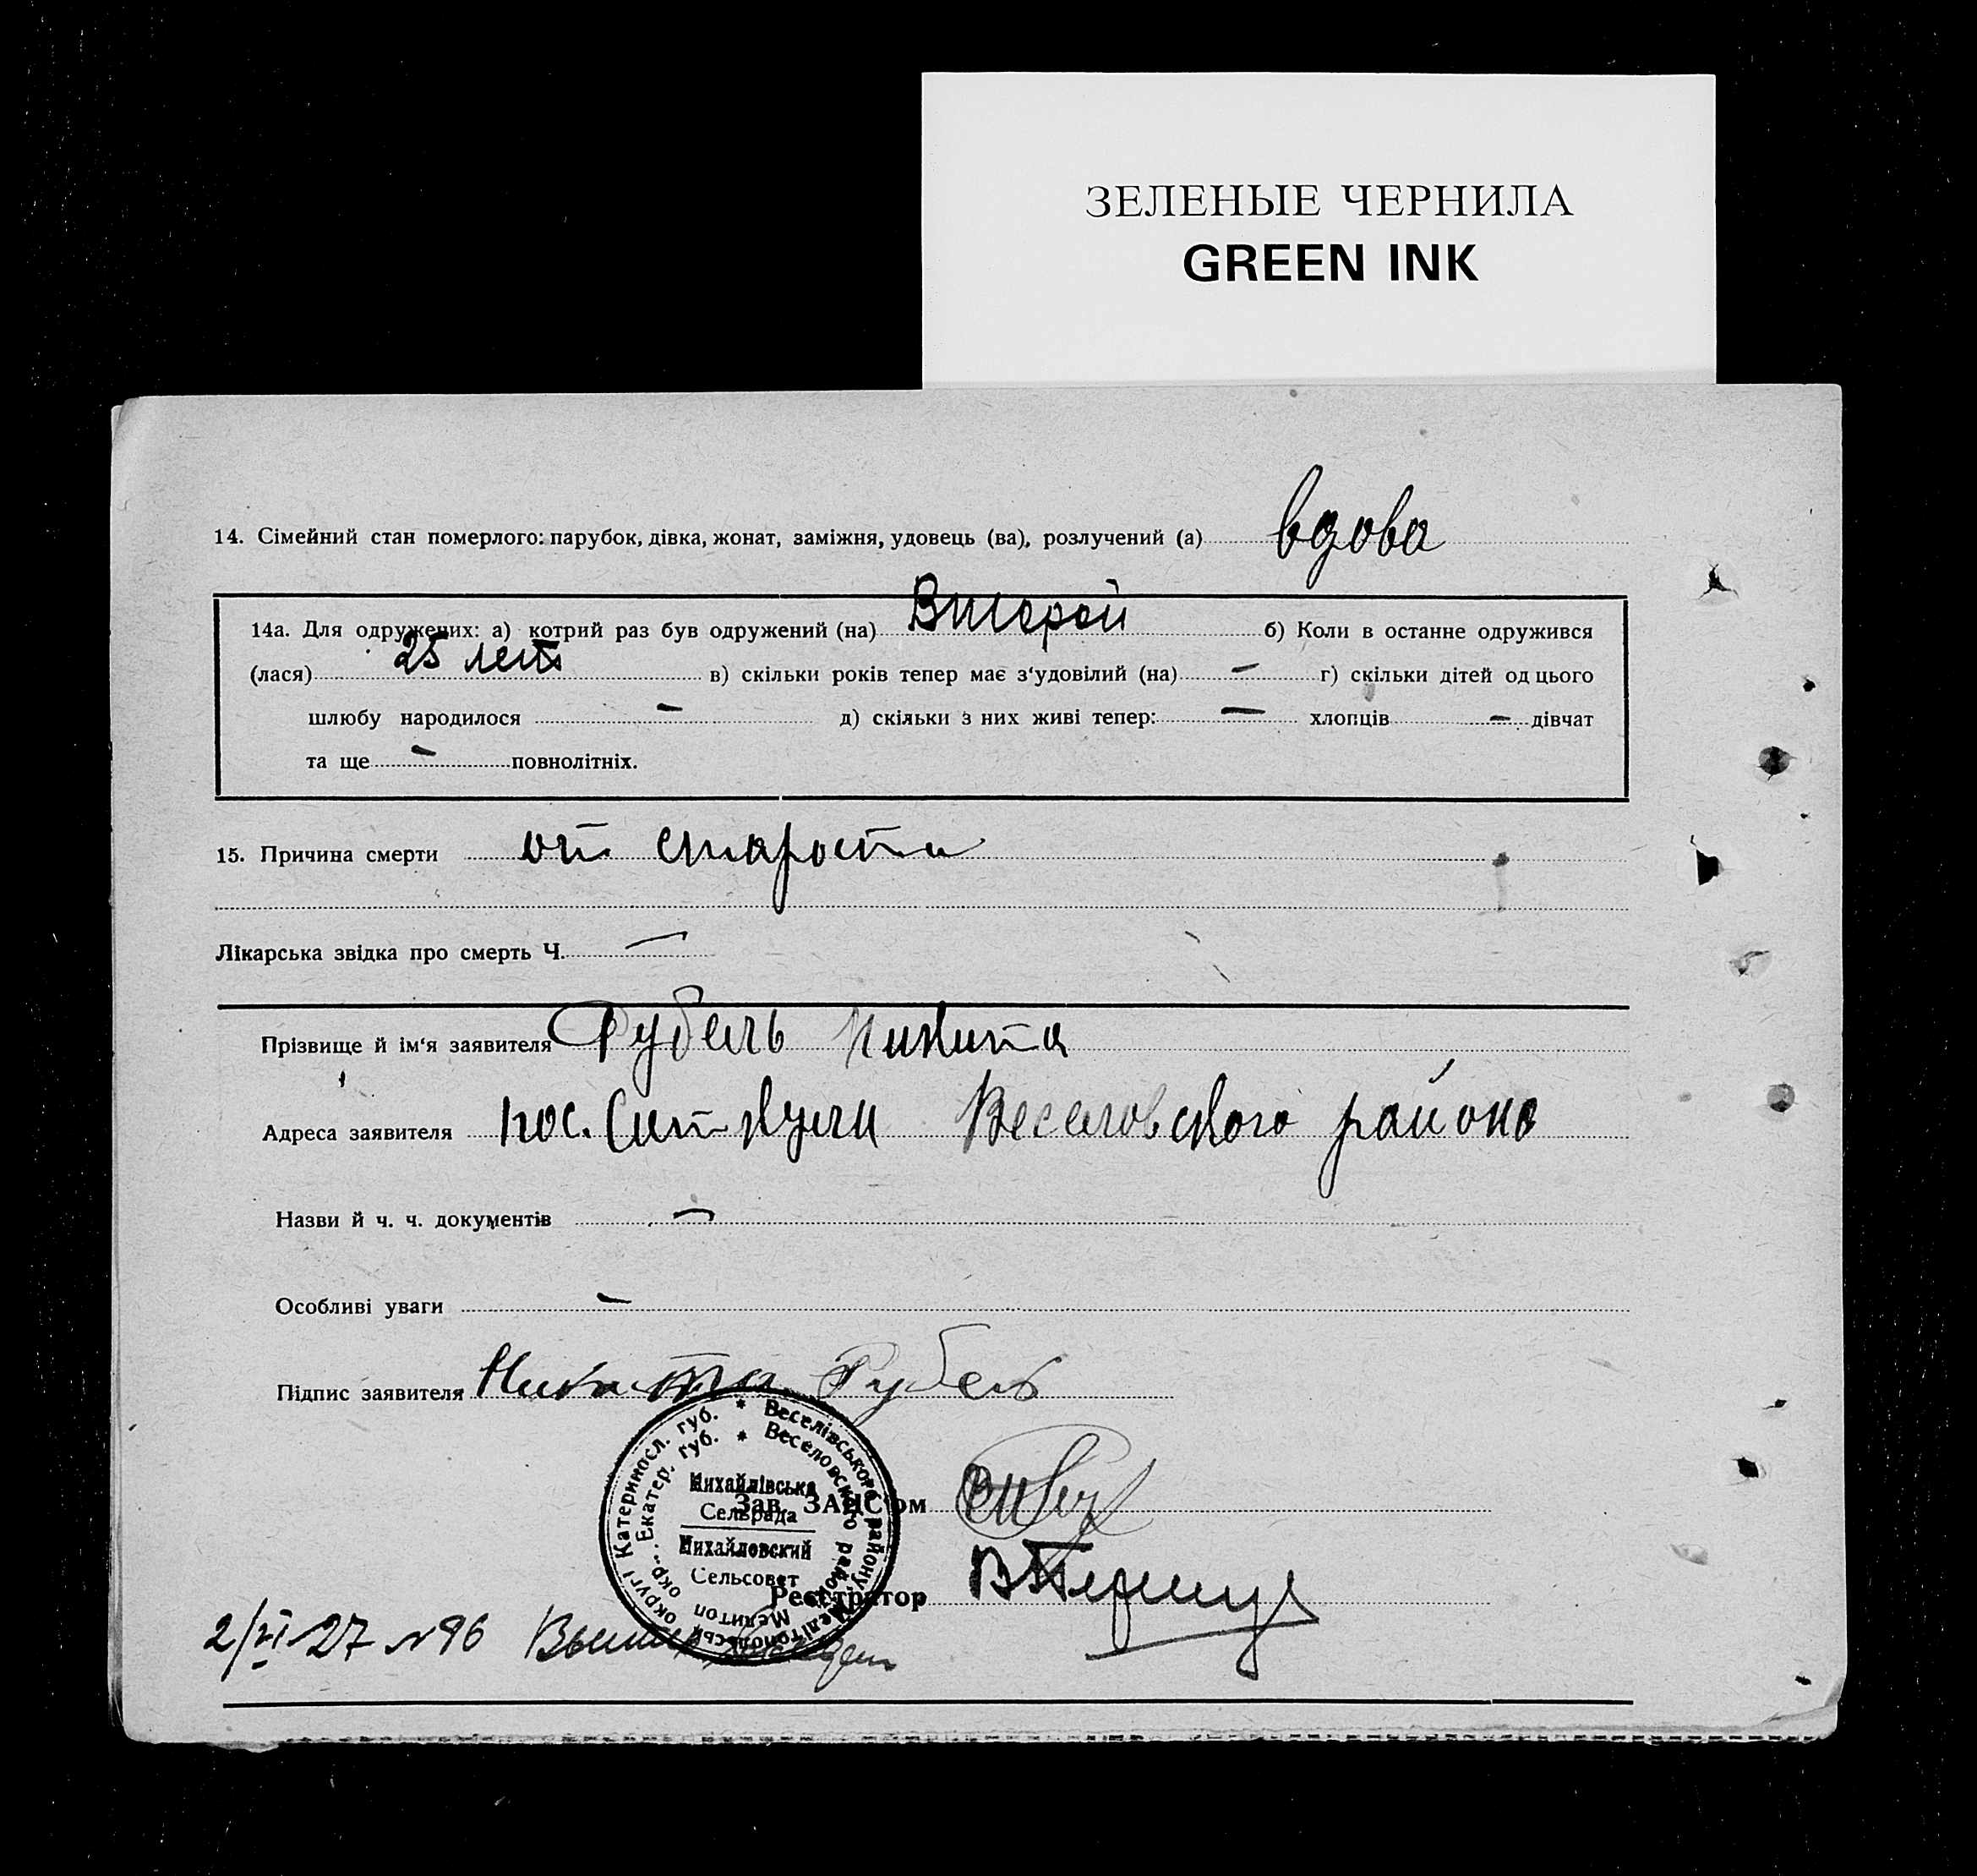 ЗЕЛЕНЫЕ ЧЕРНИЛА
GREEN INK
14. Сімейний стан померлого: парубок, дівка, жонат, заміжня, удовець (ва), розлучений (а) вдова
14а. Для одружених: а) котрий раз був одружений (на) Второй б) Коли в останне одружився
(лася) 25 лет в) скільки років тепер має з‘удовілий (на) — г) скільки дітей од цього
шлюбу народилося — д) скільки з них живі тепер: — хлопців — дівчат
та ще — повнолітніх.
15. Причина смерти от старости
Лікарська звідка про смерть Ч. —
Прізвище й ім‘я заявителя Рубель Никита
Адреса заявителя пос. Веселовского района
Назви й ч. ч. документів —
Особливі уваги —
Підпис заявителя Никита Рубель
* Веселівського району, Мелітопольськ. округі Катериносл. губ.
* Веселовского района Мелитоп. окр. Екатер. губ.
Михайлівська
Сельрада
Михайловский
Сельсовет
Зав. ЗАЦС‘ом
Реєстратор
2/VI-27 №96